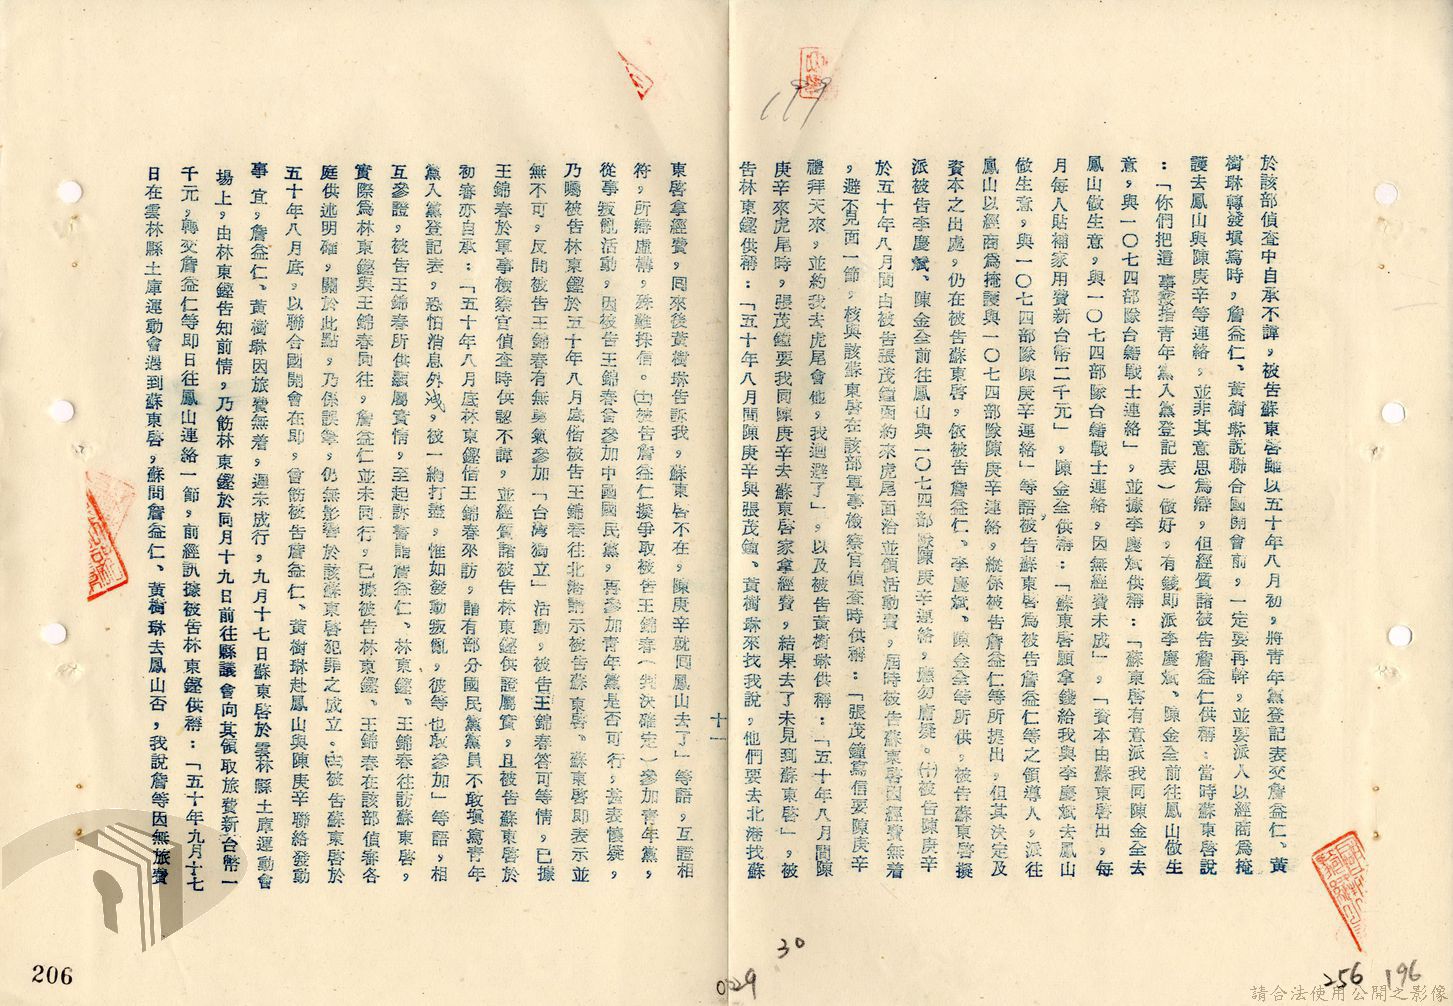 於該部偵查中自承不諱，被告蘇東啓雖以五十年八月初，將青年黨登記表交詹益仁、黃
樹琳轉發填寫時，詹益仁、黃樹琳說聯合國開會前，一定要再幹，並要派人以經商為掩
護去鳳山與陳庚辛等連絡，並非其意思為辯，但經質諸被告詹益仁供稱：當時蘇東啓說
：「你們把這事（按指青年黨入黨登記表）做好，有錢即派李慶斌、陳金全前往鳳山做生
意，與一〇七四部隊台籍戰士連絡」，並據李慶斌供稱：「蘇東啓有意派我同陳金全去
鳳山做生意，與一〇七四部隊台籍戰士連絡，因無經費未成」，「資本由蘇東啓出，每
月每人貼補家用費新台幣二千元」，陳金全供稱：「蘇東啓願拿錢給我與李慶斌去鳳山
做生意，與一〇七四部隊陳庚辛連絡」等語被告蘇東啓為被告詹益仁等之領導人，派往
鳳山以經商為掩護與一〇七四部隊陳庚辛連絡，縱係被告詹益仁等所提出，但其決定及
資本之出處，仍在被告蘇東啓，依被告詹益仁、李慶斌、陳金全等所供，被告蘇東啓擬
派被告李慶斌、陳金全前往鳳山與一〇七四部隊陳庚辛連絡，應勿庸疑。㈩被告陳庚辛
於五十年八月間由被告張茂鐘函約來虎尾面洽並領活動費，屆時被告蘇東啓因經費無着
，避不見面一節，核與該蘇東啓在該部軍事檢察官偵查時供稱：「張茂鐘寫信要陳庚辛
禮拜天來，並約我去虎尾會他，我迴避了」，以及被告黃樹琳供稱：「五十年八月間陳
庚辛來虎尾時，張茂鐘要我同陳庚辛去蘇東啓家拿經費，結果去了未見到蘇東啓」，被
告林東鏗供稱：「五十年八月間陳庚辛與張茂鐘、黃樹琳來找我說，他們要去北港找蘇
十一
東啓拿經費，回來後黃樹琳告訴我，蘇東啓不在，陳庚辛就回鳳山去了」等語，互證相
符，所辯虛構，殊難採信。㈩㈠被告詹益仁擬爭取被告王錦春（判決確定）參加青年黨，
從事叛亂活動，因被告王錦春曾參加中國國民黨，再參加青年黨是否可行，甚表懷疑，
乃囑被告林東鏗於五十年八月底偕被告王錦春往北港請示被告蘇東啓、蘇東啓即表示並
無不可，反問被告王錦春有無勇氣參加「台灣獨立」活動，被告王錦春答可等情，已據
王錦春於軍事檢察官偵查時供認不諱，並經質諸被告林東鏗供證屬實，且被告蘇東啓於
初審亦自承：「五十年八月底林東鏗偕王錦春來訪，謂有部分國民黨黨員不敢填寫青年
黨入黨登記表，恐怕消息外洩，被一網打盡，惟如發動叛亂，彼等也敢參加」等語，相
互參證，被告王錦春所供顯屬實情，至起訴書謂詹益仁、林東鏗、王錦春往訪蘇東啓，
實際為林東鏗與王錦春同往，詹益仁並未同行，已據被告林東鏗、王錦春在該部偵審各
庭供述明確，關於此點，乃係誤繕，仍無影響於該蘇東啓犯罪之成立。被告蘇東啓於
五十年八月底，以聯合國開會在即，曾飭被告詹益仁、黃樹琳赴鳳山與陳庚辛聯絡發動
事宜，詹益仁、黃樹琳因旅費無着，遲未成行，九月十七日蘇東啓於雲林縣土庫運動會
場上，由林東鏗告知前情，乃飭林東鏗於同月十九日前往縣議會向其領取旅費新台幣一
千元，轉交詹益仁等即日往鳳山連絡一節，前經訊據被告林東鏗供稱：「五十年九月十七
日在雲林縣土庫運動會遇到蘇東啓，蘇問詹益仁、黃樹琳去鳳山否，我說詹等因無旅費
206
30
029
256
196
請合法使用公開之影像